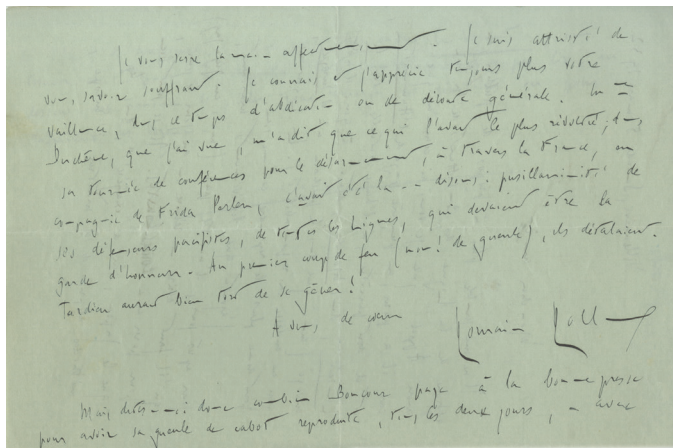 Je vous serre la main affectueusement. Je suis attristé de
vous savoir souffrant. Je connais et j'apprécie toujours plus votre
vaillance, dans ce temps d'abdication ou de déroute générale. Mme
Duchêne, que j'ai vue, m'a dit que ce qui l'avait le plus révolté, dans
sa tournée de conférences pour le désarmement, à travers la France, en
compagnie de Frida Perlen, c'avait été la -- disons : pusillanimité de
ses défenseurs pacifistes, de toutes les Ligues, qui devaient être la
garde d'honneur. Au premier coup de feu (non! de gueule), ils détalaient.
Tardieu aurait bien tort de se gêner!
A vous, de cœur
Romain Rolland
Mais dites-moi donc combien Boncour paye à la bonne presse
pour avoir sa gueule de cabot reproduite, tous les deux jours, avec